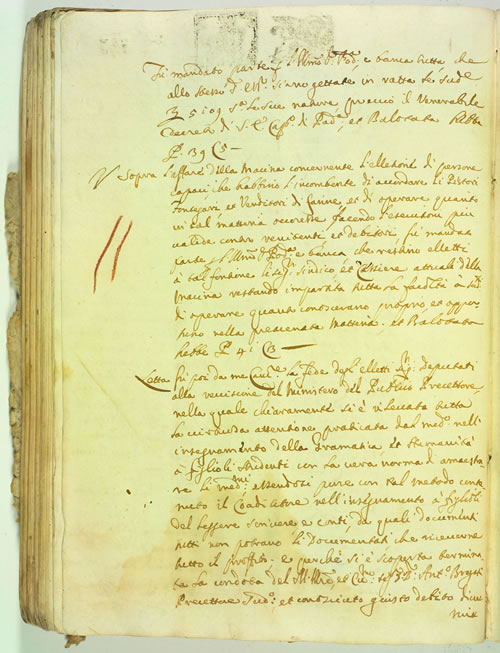 Fù mandato parte Illmo Sr Podtà e banca tutta che
allo stesso siano gettate in ratta le sude
le sue nature precio il Venerabile
Decreto di S. E. Capo di Padva, et Balotata hebbe
P. 39 C 5 —
Sopra l'affare della Macina concernente l'elletioni di persone
capaci che habbino l'incombente di acordare li Pistori
Fontegari et Venditori di farine, et di operare quanto
in tal materia occoresse facendo l'esecutioni più
valide contro renitenti et debitori fù mandata
parte Illmo Podtà e banca, che restino elletti
a tal fontione li Sigri Sindico et Cassiere attuali della
Macina restando impartita tutta la facoltà a sudi
di operare quanto conoscerano proprio, et oppor
tuno nella preacenata materia. et Balotata
hebbe P. 41 C 3 —
Letta fù poi da me Cancre la fede degl'elletti Sigri deputati
alla revisione del Ministero del Publico Precettore,
nella quale chiaramente si è rilevata tutta
la attentione praticata dal medo nell'
insegnamento della Gramatica et Humanità
a figlioli studenti con la vera norma d'amaestra
re li medmi attendosi pure con tal metodo conte
nuto il Coadiutore nell'insegnamento a figlioli
del leggere scrivere e conti, da quali documenti
tutti non potrano li Documentati che riceverne
tutto il profitto. e perche si è scoperta termina
ta la condota del Sr Anto
Precettore Sudo: et conosciuto giusto debito di ue
nire